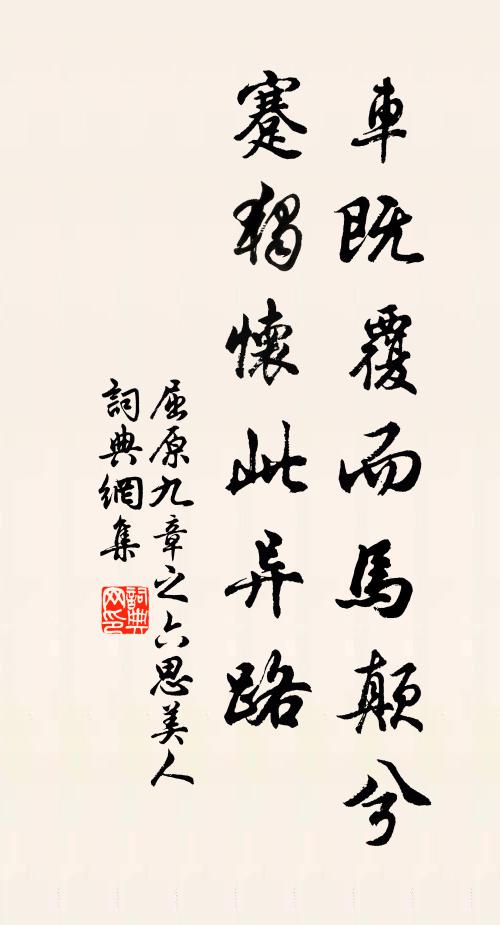 車既覆而馬顛兮
蹇獨懷此异路
屈原九章之六思美人
詞典網集
詞典
网印